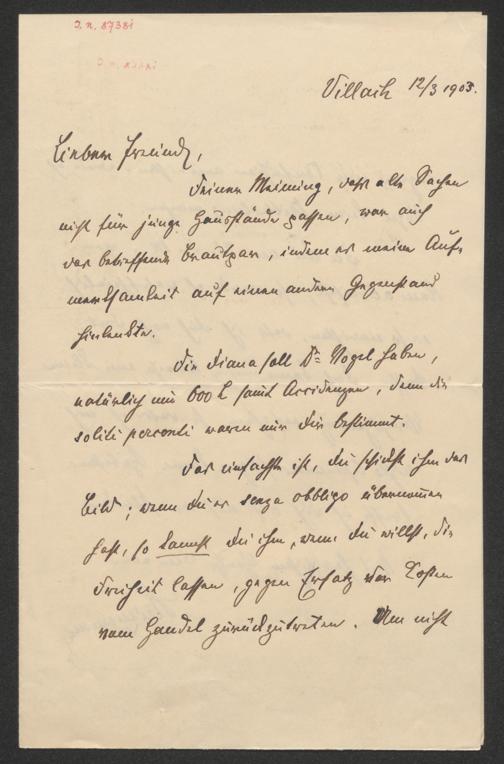 I. N. 87381
Villach 12/3 1903.
Lieber Freund,
Deiner Meinung, daß alte Sachen
nicht für junge Hausstände passen, war auch
das betreffende Brautpaar, indem es meine Auf-
merksamkeit auf einen andern Gegenstand
hinlenkte.
Die Diana soll Dr. Vogel haben,
natürlich um 600 K samt Accidenzen, denn die
soliti perconti waren nur für Dich bestimmt.
Das einfachste ist, Du schickst ihm das
Bild; wenn Du es senza obbligo übernommen
hast, so kannst Du ihm, wenn Du willst, die
Freiheit lassen, gegen Ersatz der Kosten
vom Handel zurückzutreten. Um nicht